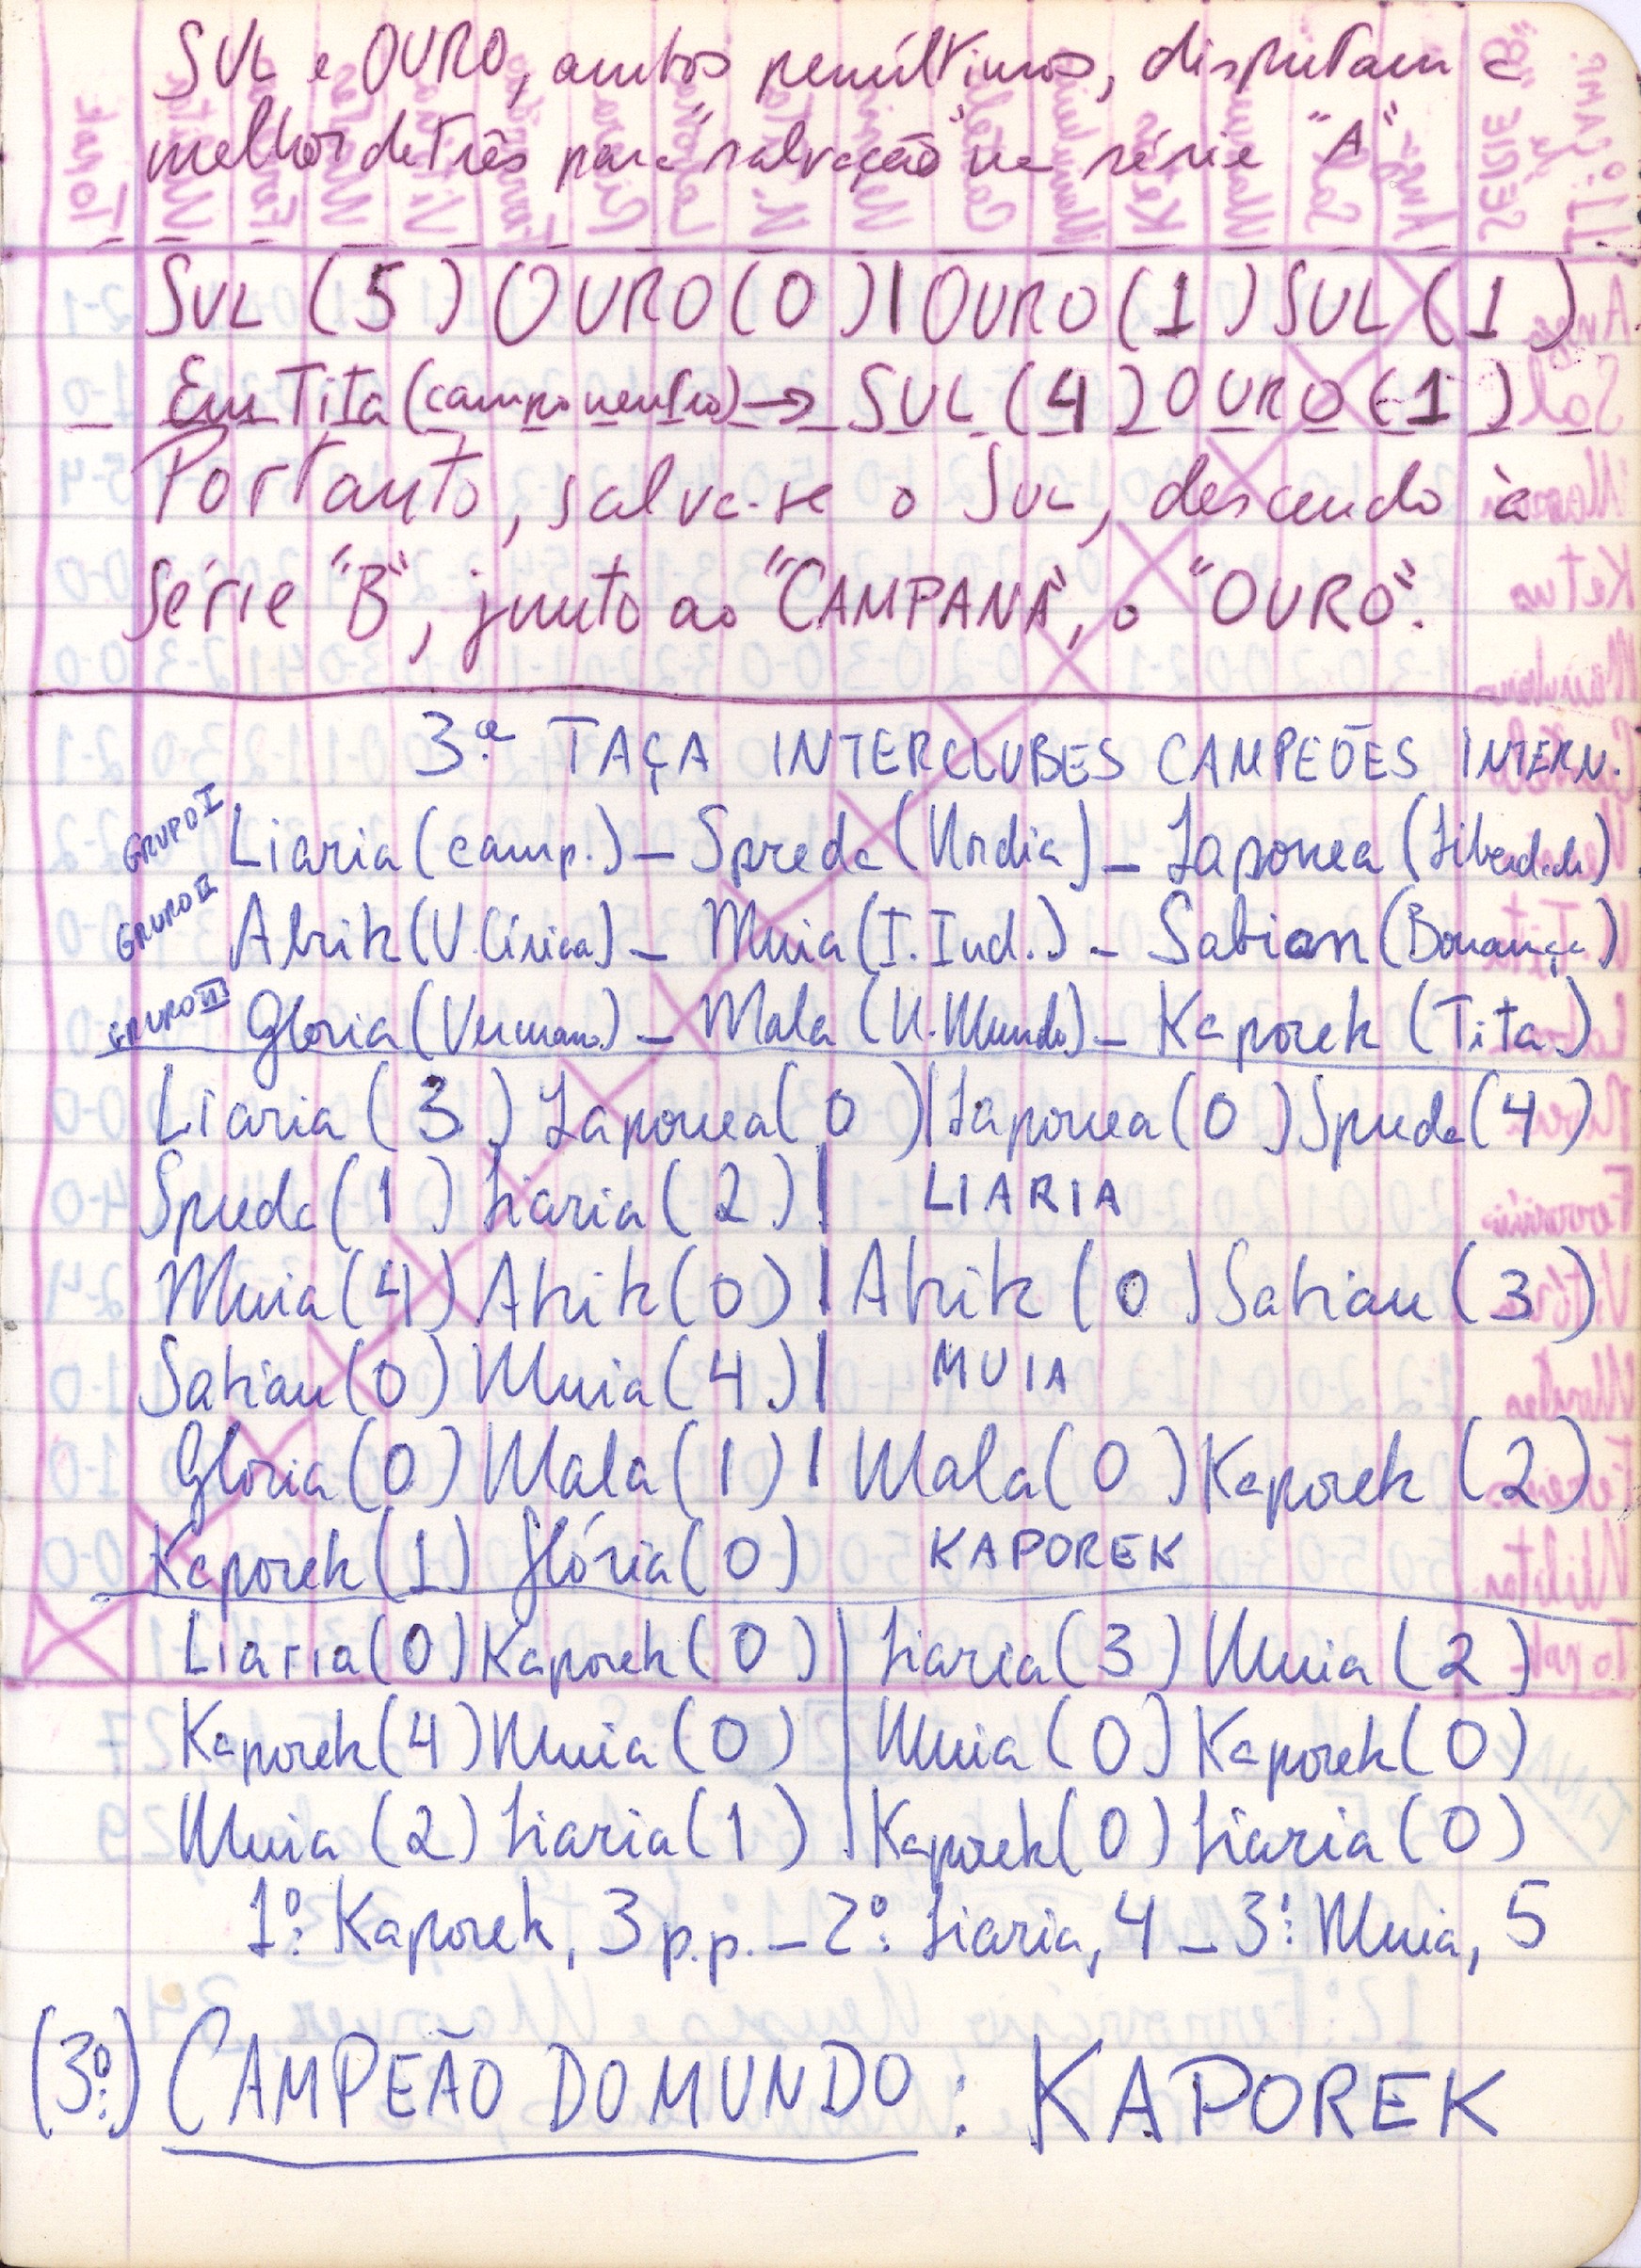 SUL e OURO, ambos penúltimos, disputam a
melhor de três para "salvação" na série "A"
SUL (5) OURO (0) | OURO (1) SUL (1)
Em Tita (campo neutro) → SUL (4) OURO (1)
Portanto, salva-se o SUL, descendo à
Série "B", junto ao "CAMPANA", o "OURO".
3ª TAÇA INTERCLUBES CAMPEÕES INTERN.
GRUPO I Liaria (camp.) – Spreda (Nordia) – Laponea (Liberdade)
GRUPO II Abrik (V. Cínica) – Muia (I. Ind.) – Sabian (Bonança)
GRUPO III Gloria (Vermano.) – Mala (N. Mundo) – Kaporek (Tita)
Liaria (3) Laponea (0) | Laponea (0) Spreda (4)
Spreda (1) Liaria (2) | LIARIA
Muia (4) Abrik (0) | Abrik (0) Sabian (3)
Sabian (0) Muia (4) | MUIA
Gloria (0) Mala (1) | Mala (0) Kaporek (2)
Kaporek (1) Glória (0) KAPOREK
Liaria (0) Kaporek (0) | Liaria (3) Muia (2)
Kaporek (4) Muia (0) | Muia (0) Kaporek (0)
Muia (2) Liaria (1) | Kaporek (0) Liaria (0)
1º: Kaporek, 3 p.p. – 2º: Liaria, 4 – 3º: Muia, 5
(3º:) CAMPEÃO DO MUNDO: KAPOREK